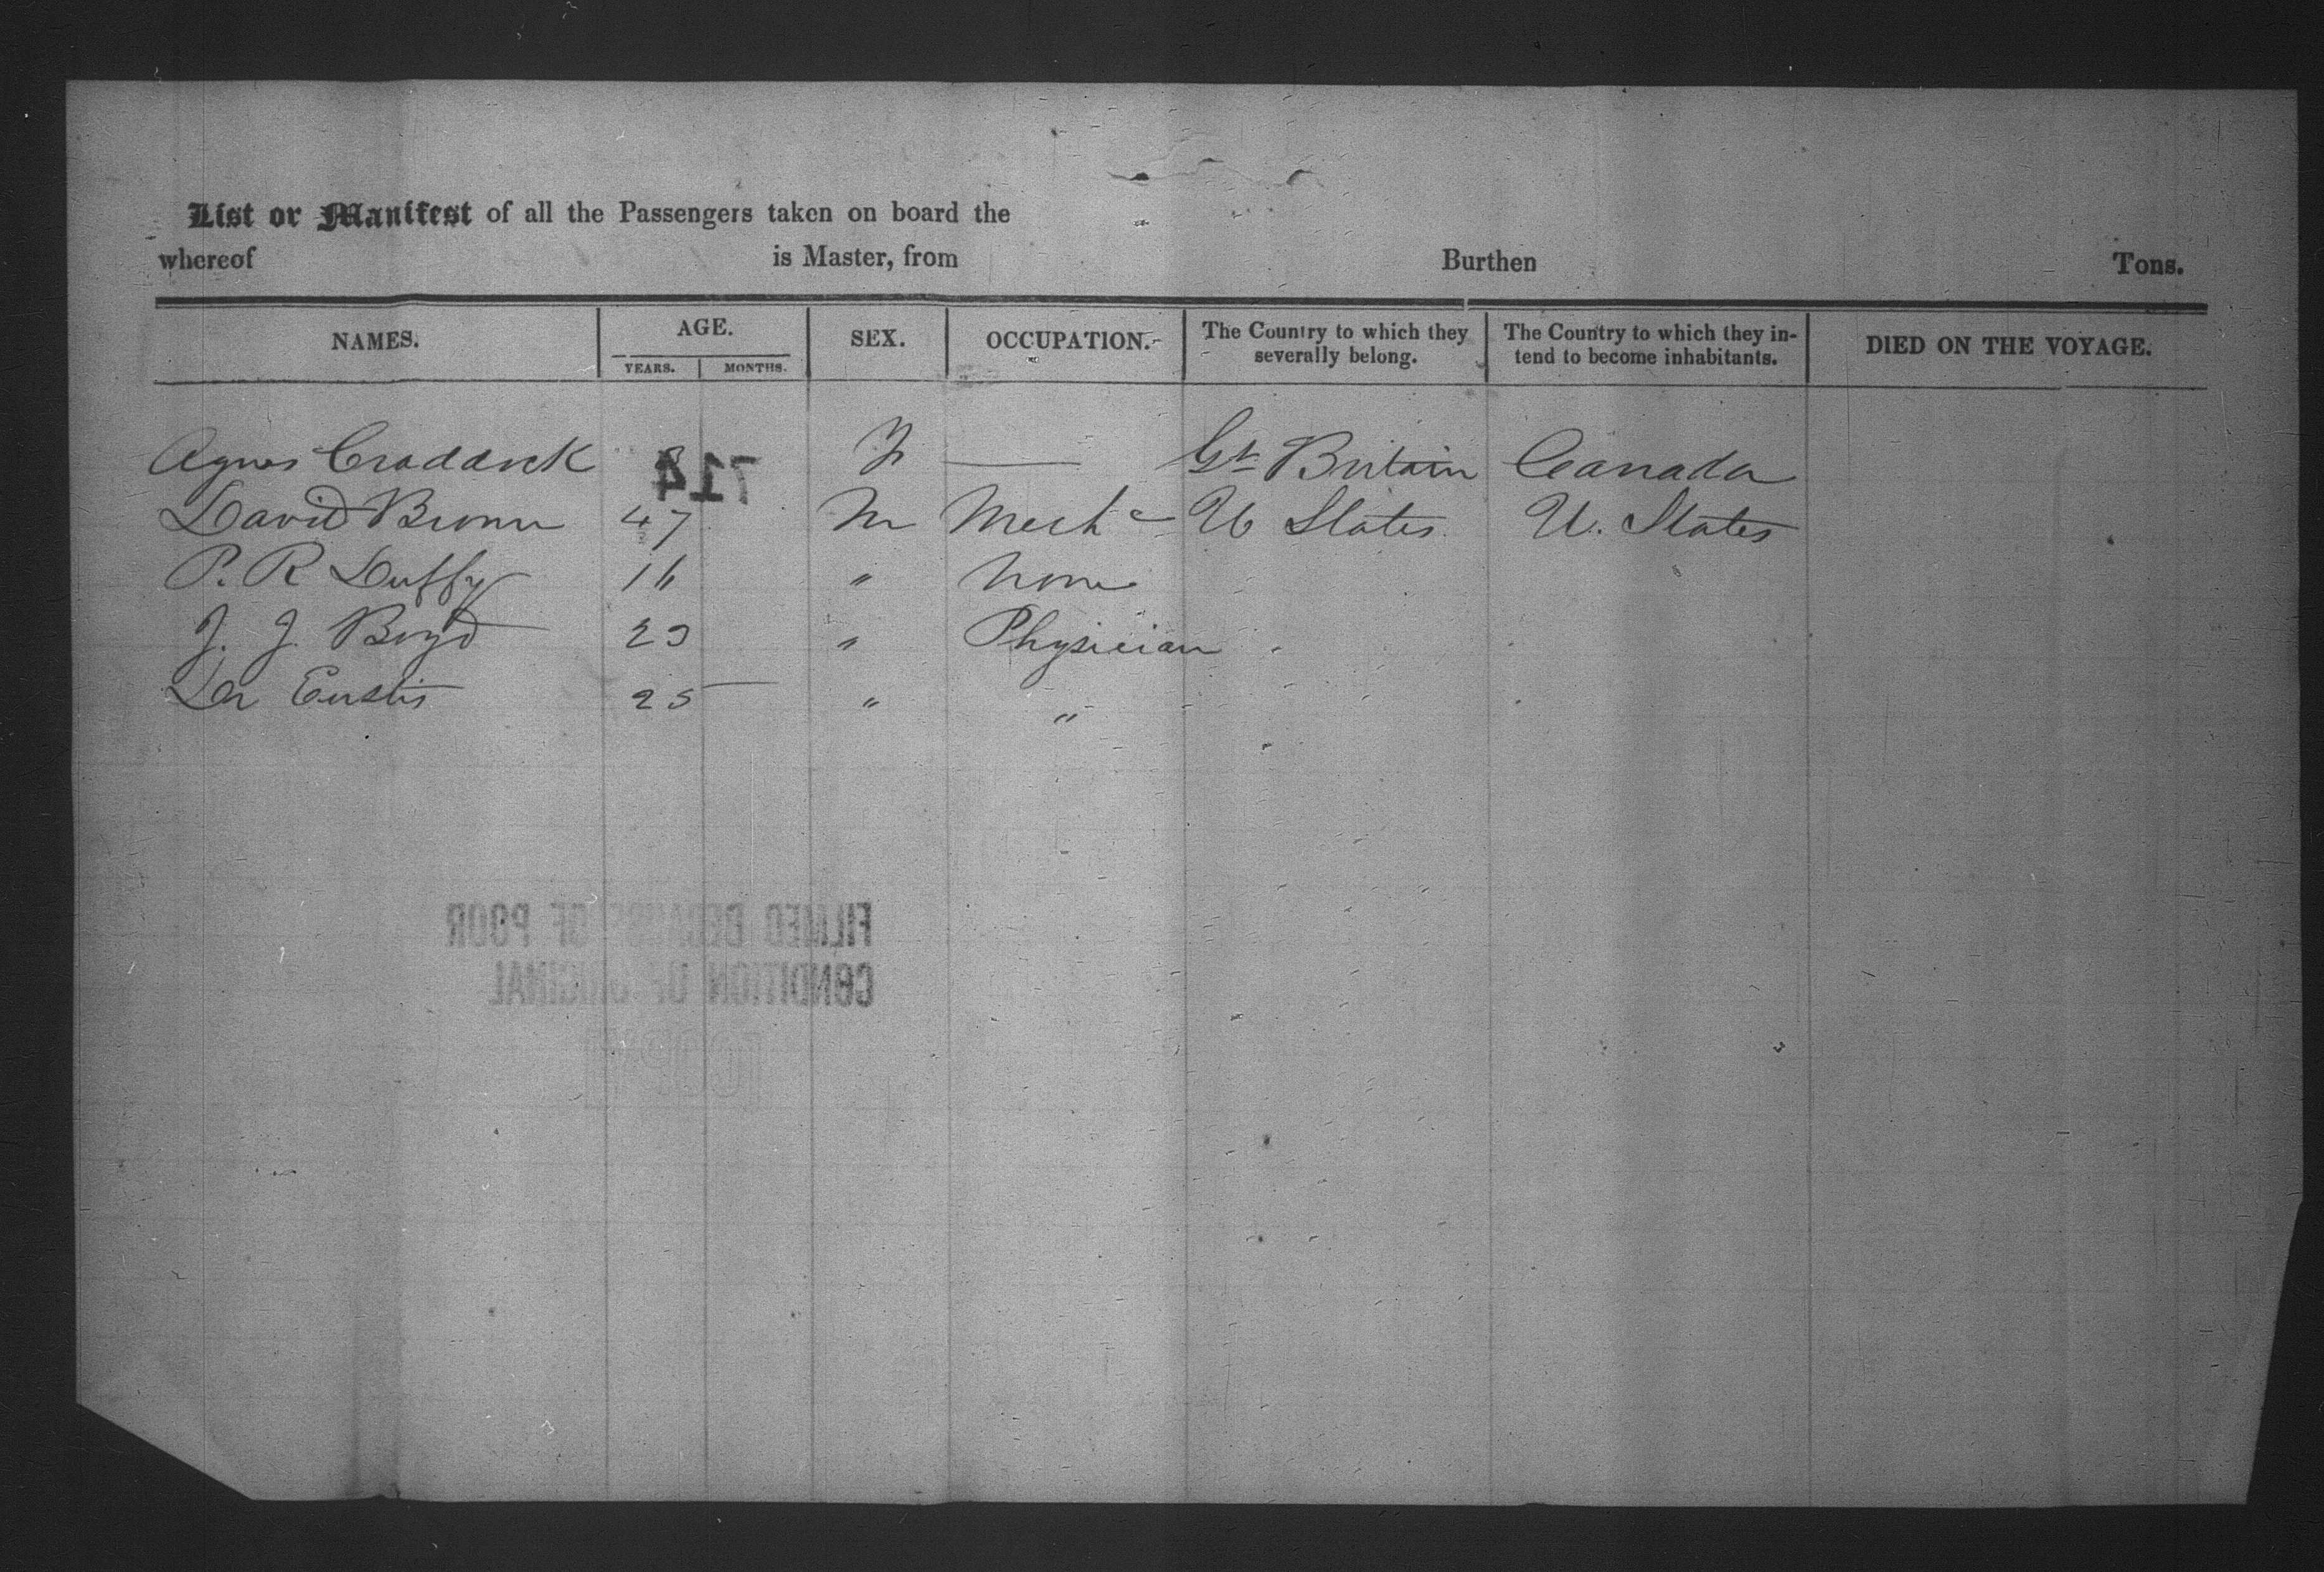 List or Manifest of all the Passengers taken on board the
whereof is Master, from Burthen Tons.
NAMES. AGE. SEX. OCCUPATION. The Country to which they severally belong. The Country to which they intend to become inhabitants. DIED ON THE VOYAGE.
YEARS. MONTHS.
Agnes Craddock F — Gt Britain Canada
714
David Brown 47 M Mechc U States U. States
P. R Duffy 16 " None
J. J. Boyd 23 " Physician
Dr Eustis 25 " "
FILMED BECAUSE OF POOR
CONDITION OF ORIGINAL
COPY